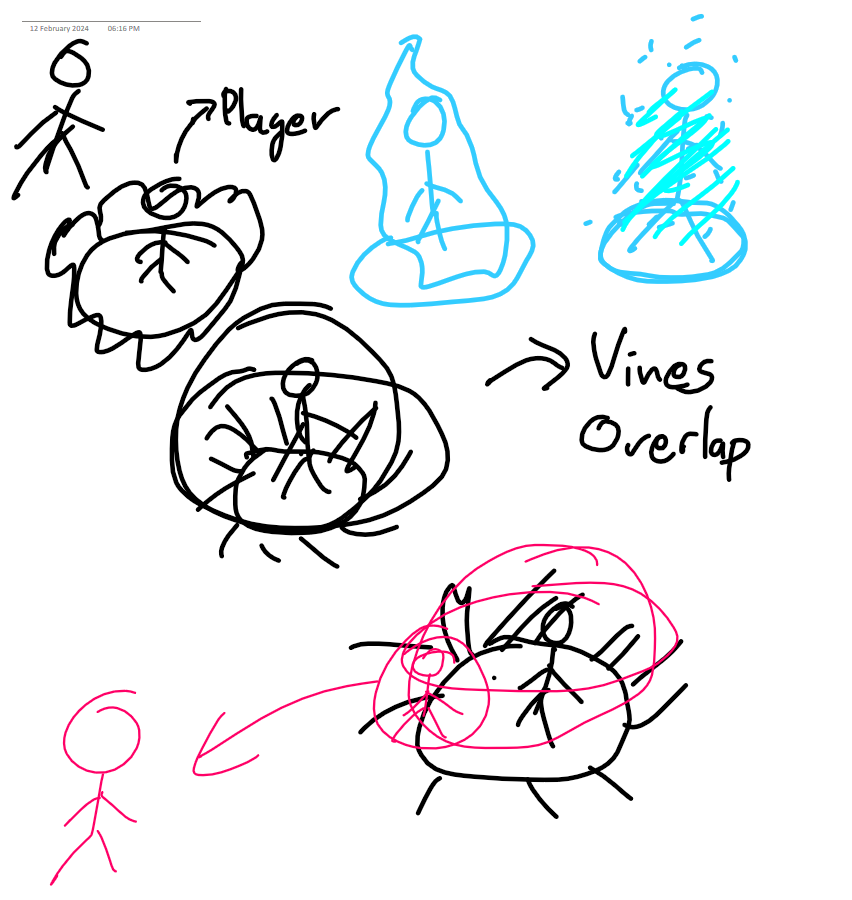 12 February 2024 06:16 PM
Player
Vines
Overlap